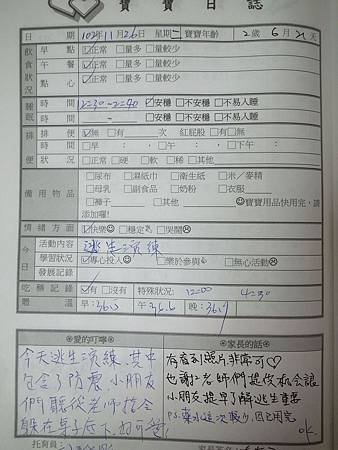 寶寶日誌
日期 102年11月26日 星期二 寶寶年齡 2歲6月21天
飲食狀況 早點 ☑正常 □量多 □量較少
午餐 ☑正常 □量多 □量較少
點心 ☑正常 □量多 □量較少
睡眠 時間 12:30~2:40 ☑安穩 □不安穩 □不易入睡
時間 ~ □安穩 □不安穩 □不易入睡
排便 排便 ☑無 □有 次 紅屁股 □有□無
時間 □早: , □午: , □下午:
狀況 □正常 □硬 □軟 □稀 □其他
備用物品 □尿布 □濕紙巾 □衛生紙 □米／麥精
□母乳 □副食品 □奶粉 □衣服
□褲子 □其他 ☺寶寶用品快用完,請
添加喔!
情緒方面 ☑快樂☺ □穩定 □哭鬧☹
今日 活動內容 逃生演練
學習狀況 ☑專心投入 □樂於參與 □無心活動
發展記錄
吃藥記錄 ☑有 □沒有 特殊狀況: 12:00 4:30
體溫 早: 36.5 午: 36.6 晚: 36.9
愛的叮嚀
今天逃生演練,其中
包含了防震,小朋友
們聽從老師指令
躲在桌子底下,好可愛!
家長的話
有看到照片非常可♡
也謝謝老師們提供機會讓
小朋友提早了解逃生重要
P.S. 藥水這次較少,因已用完
OK
托育員